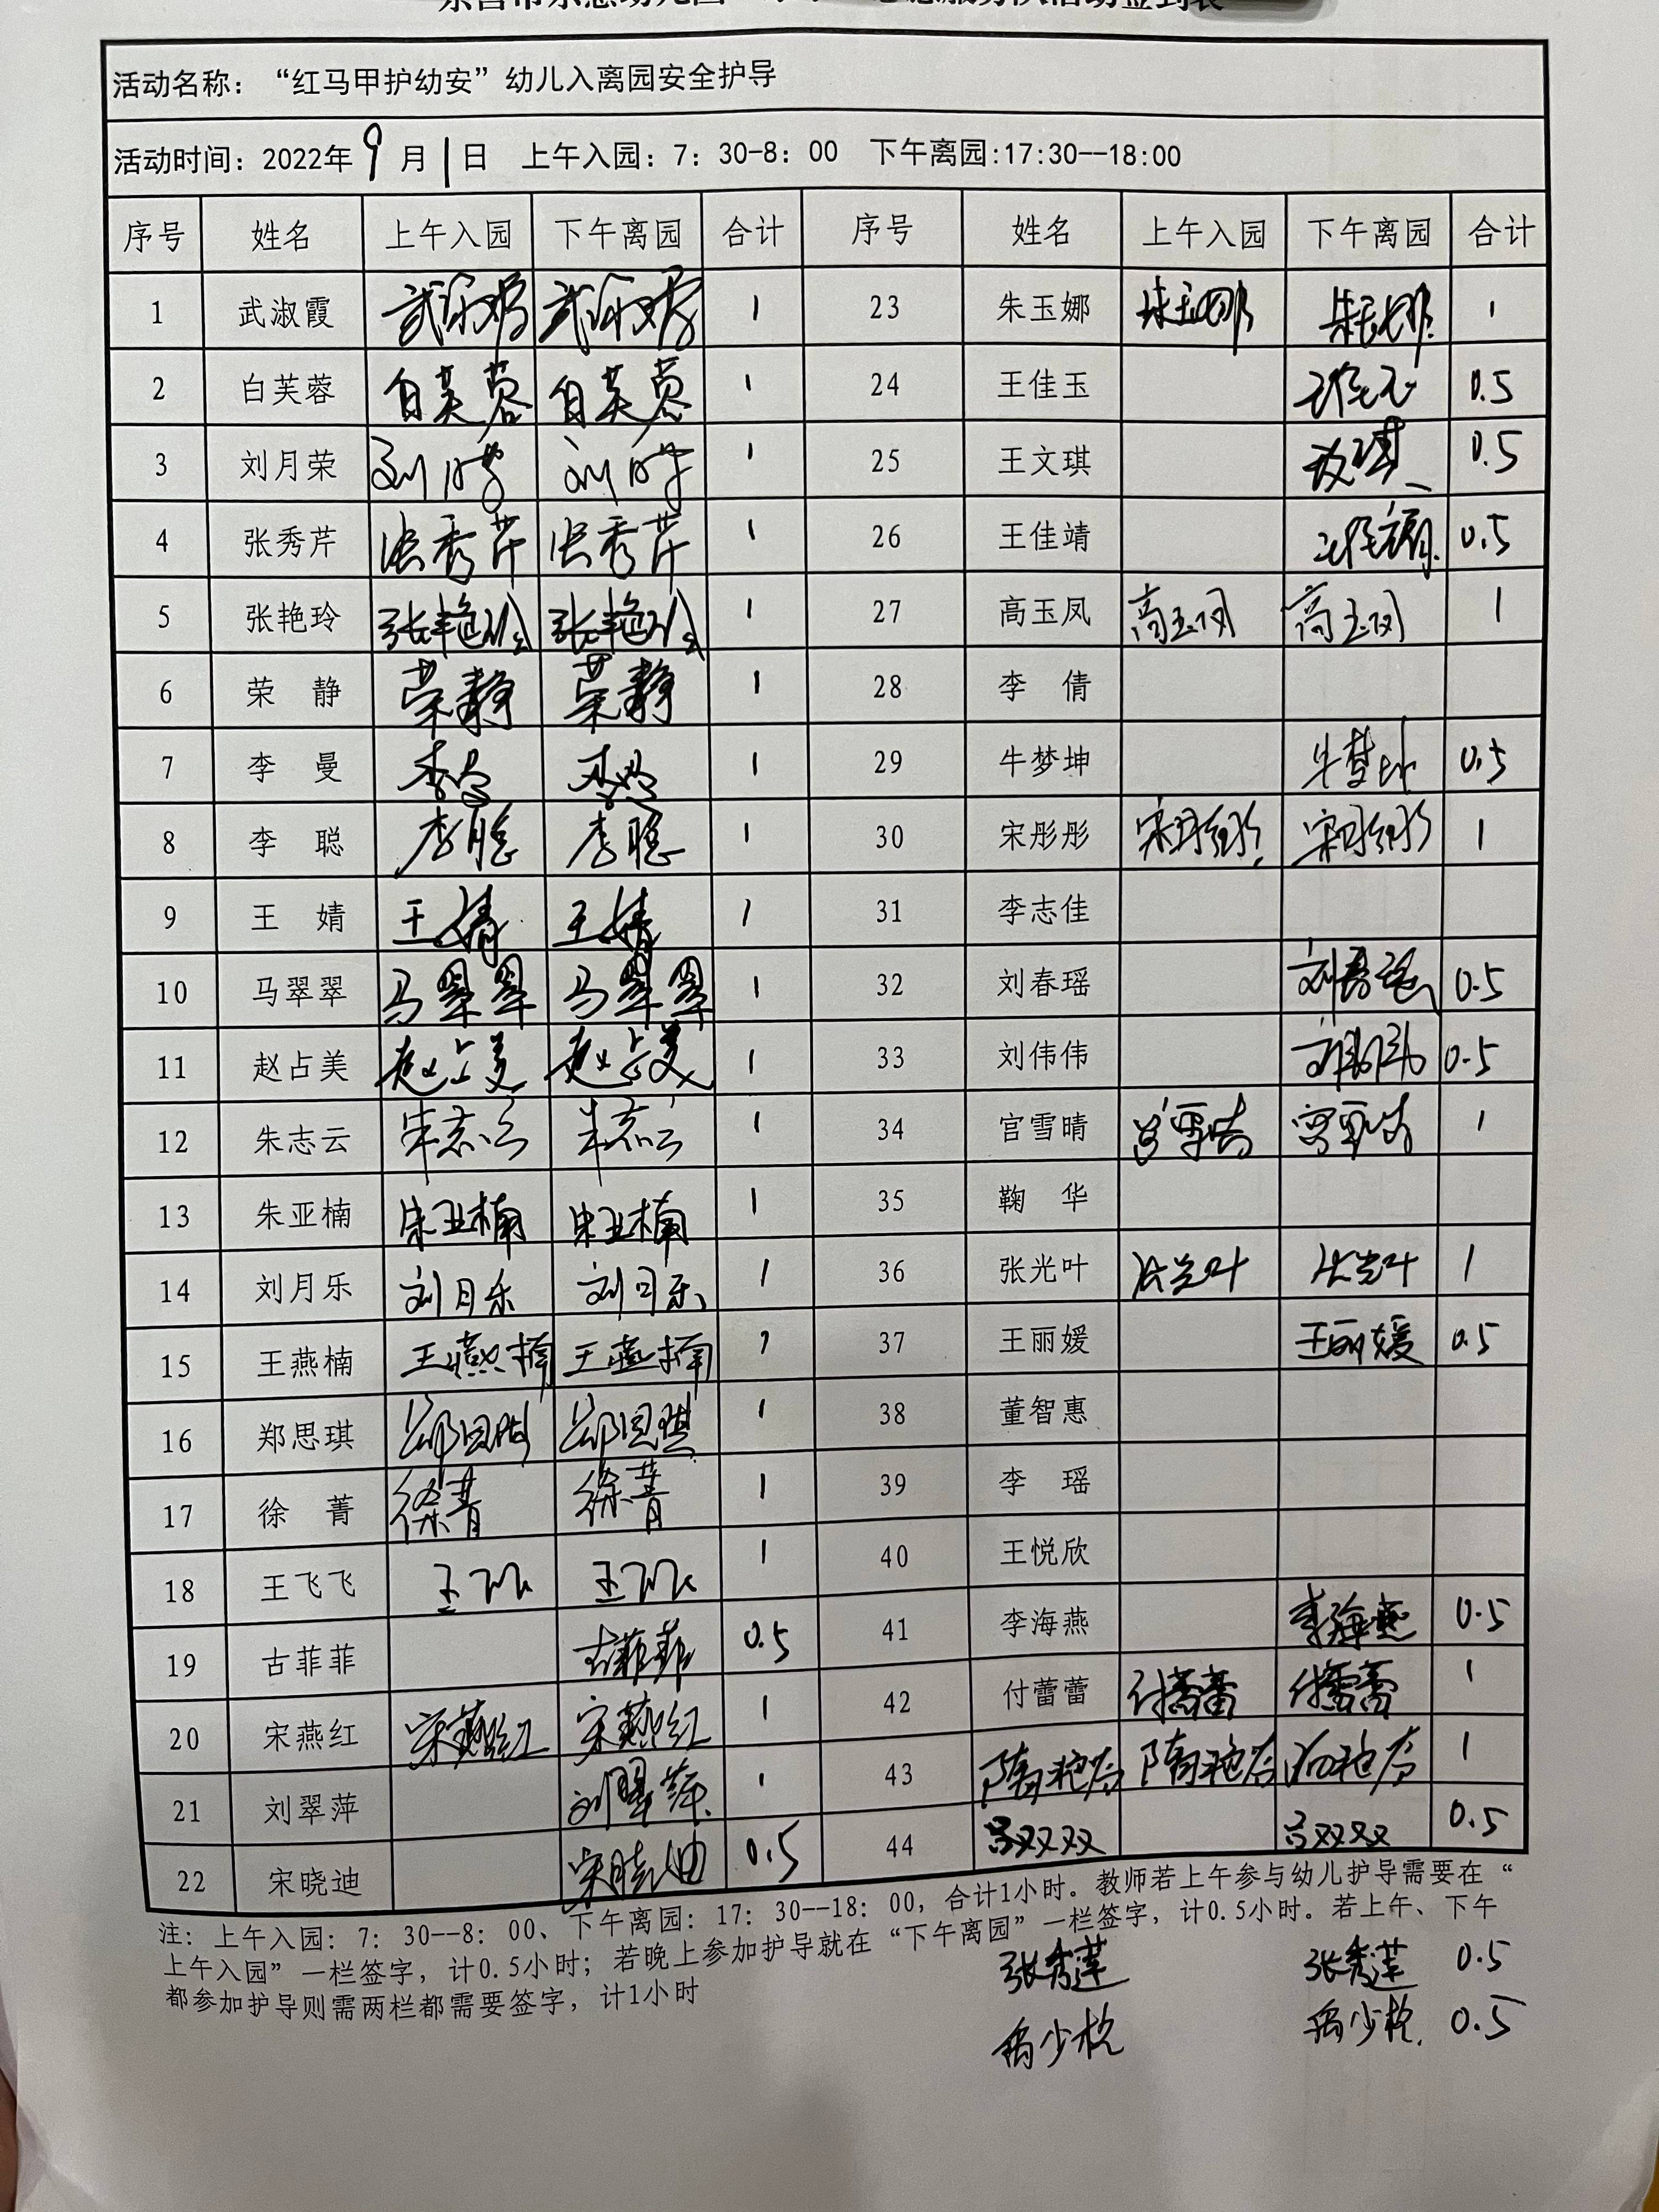 活动名称：“红马甲护幼安”幼儿入离园安全护导
活动时间：2022年9月1日 上午入园：7：30-8：00 下午离园:17:30--18:00
序号 姓名 上午入园 下午离园 合计 序号 姓名 上午入园 下午离园 合计
1 武淑霞 武淑霞 武淑霞 1 23 朱玉娜 朱玉娜 朱玉娜 1
2 白芙蓉 白芙蓉 白芙蓉 1 24 王佳玉 王佳玉 0.5
3 刘月荣 刘月荣 刘月荣 1 25 王文琪 王文琪 0.5
4 张秀芹 张秀芹 张秀芹 1 26 王佳靖 王佳靖 0.5
5 张艳玲 张艳玲 张艳玲 1 27 高玉凤 高玉凤 高玉凤 1
6 荣 静 荣静 荣静 1 28 李 倩
7 李 曼 李曼 李曼 1 29 牛梦坤 牛梦坤 0.5
8 李 聪 李聪 李聪 1 30 宋彤彤 宋彤彤 宋彤彤 1
9 王 婧 王婧 王婧 1 31 李志佳
10 马翠翠 马翠翠 马翠翠 1 32 刘春瑶 刘春瑶 0.5
11 赵占美 赵占美 赵占美 1 33 刘伟伟 刘伟伟 0.5
12 朱志云 朱志云 朱志云 1 34 宫雪晴 宫雪晴 宫雪晴 1
13 朱亚楠 朱亚楠 朱亚楠 1 35 鞠 华
14 刘月乐 刘月乐 刘月乐 1 36 张光叶 张光叶 张光叶 1
15 王燕楠 王燕楠 王燕楠 1 37 王丽媛 王丽媛 0.5
16 郑思琪 郑思琪 郑思琪 1 38 董智惠
17 徐 菁 徐菁 徐菁 1 39 李 瑶
18 王飞飞 王飞飞 王飞飞 1 40 王悦欣
19 古菲菲 古菲菲 0.5 41 李海燕 李海燕 0.5
20 宋燕红 宋燕红 宋燕红 1 42 付蕾蕾 付蕾蕾 付蕾蕾 1
21 刘翠萍 刘翠萍 1 43 1
22 宋晓迪 宋晓迪 0.5 44 吕双双 吕双双 0.5
注：上午入园：7：30--8：00、下午离园：17：30--18：00，合计1小时。教师若上午参与幼儿护导需要在“
上午入园”一栏签字，计0.5小时；若晚上参加护导就在“下午离园”一栏签字，计0.5小时。若上午、下午
都参加护导则需两栏都需要签字，计1小时
张秀莲 张秀莲 0.5
0.5